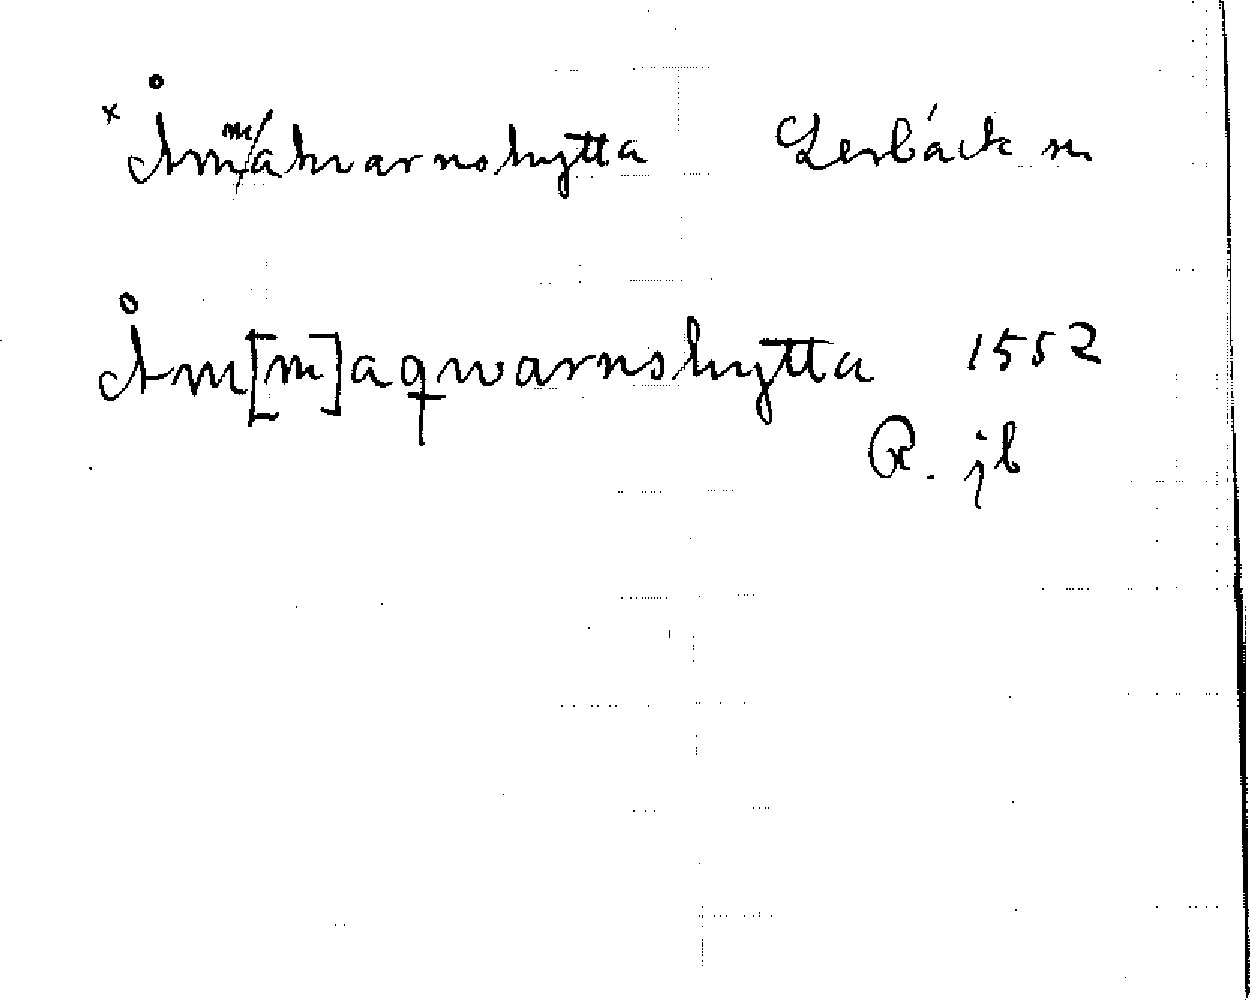 x Åmmakvarnshytta Lerbäck sn
Åm[m]aqwarnshytta 1552
R. jb